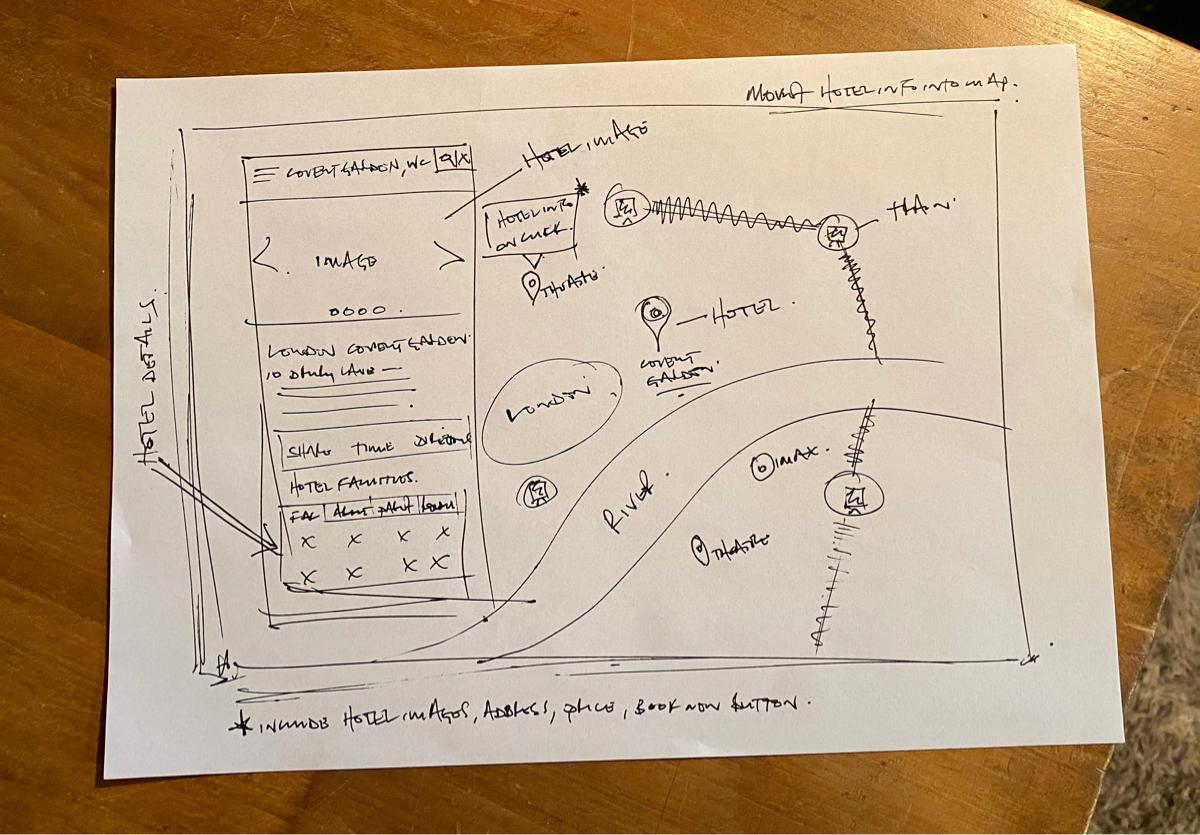 HOTEL INFO INTO MAP.
HOTEL IMAGE
COVENT GARDEN, WC
X
HOTEL INFO
ON CLICK.
TRAIN.
< . IMAGE >
THEATRE.
HOTEL .
HOTEL DETAILS.
LONDON COVENT GARDEN.
10 DRURY LANE —
COVENT
GARDEN.
LONDON
SHARE TIME
HOTEL FACILITIES.
IMAX.
RIVER .
X X X X
THEATRE
X X X X
* INCLUDE HOTEL IMAGES, ADDRESS, PRICE, BOOK NOW BUTTON .